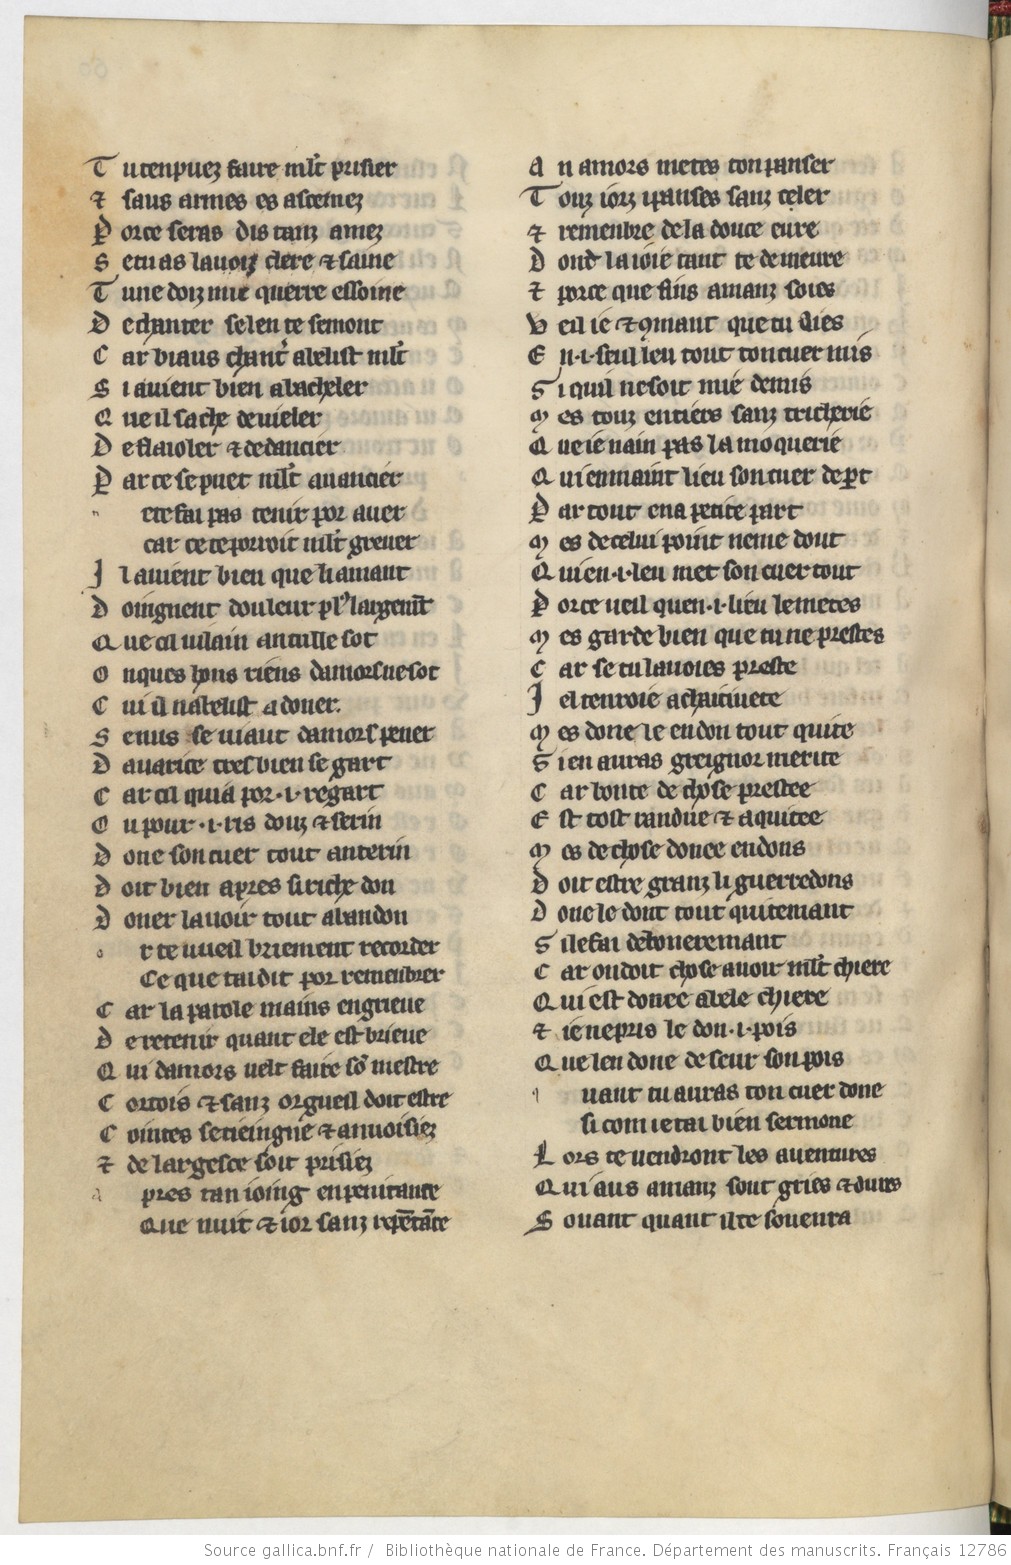 T u ten puez faire ml̃t prisier
⁊ saus armes es acemez
P orce seras dis tanz amez
S e tu as la uoiz clere ⁊ saine
T u ne doiz mie querre essoine
D e chanter se len te semont
C ar biaus chant̃ abelist ml̃t
S i auient bien a bacheler
Q ue il sache de uieler
D e flaioler ⁊ de dancier
P ar ce se puet ml̃t auancier
e te fai pas tenir por auer
car ce te porroit ml̃t greuer
I l auient bien que li amant
D oingnent du leur pl' largem̃t
Q ue cil uilain antulle sot
O nques hons riens damors ne sot
C ui il nabelist a doner.
S e nus se uiaut damors pener
D auarice tres bien se gart
C ar cil qui a por .i. regart
O u pour .i. ris douz ⁊ serin
D one son cuer tout anterin
D oit bien apres si riche don
D oner lauoir tout abandon
o r te uueil briement recorder
Ce que tai dit por remenbrer
C ar la parole mains engrieue
D e retenir quant ele est brieue
Q ui damors uelt faire sõ mestre
C ortois ⁊ sanz orgueil doit estre
C ointes se tieingne ⁊ anuoisiez
⁊ de largesce soit prisiez
a pres tan ioing en penitance
Que nuit ⁊ ior sanz repẽtãce
A n amors metes ton panser
T ouz iorz i panses sanz celer
⁊ remenbre de la douce eure
D ont la ioie tant te demeure
⁊ porce que fins amanz soies
V eil ie ⁊ ꝯmant que tu aies
E n .i. seul leu tout ton cuer mis
S i quil ne soit mie demis
M es touz entiers sanz tricherie
Q ue ie nain pas la moquerie
Q ui en maint lieu son cuer depꝛt
P ar tout en a petite part
M es de celui point ne me dout
Q ui en .i. leu met son cuer tout
P orce ueil quen .i. lieu le metes
M es garde bien que tu ne prestes
C ar se tu lauoies preste
I el tenroie a chaitiuete
M es done le en don tout quite
S i en auras greignor merite
C ar bonte de chose prestee
E st tost randue ⁊ aquitee
M es de chose donee en dons
D oit estre granz li guerredons
D one le dont tout quitemant
S i le fai deboneremant
C ar on doit chose auoir ml̃t chiere
Q ui est donee a bele chiere
⁊ ie ne pris le don .i. pois
Q ue len done deseur son pois
q uant tu auras ton cuer done
si com ie tai bien sermone
L ors te uendront les auentures
Q ui aus amanz sont gries ⁊ dures
S ouant quant il te souenra